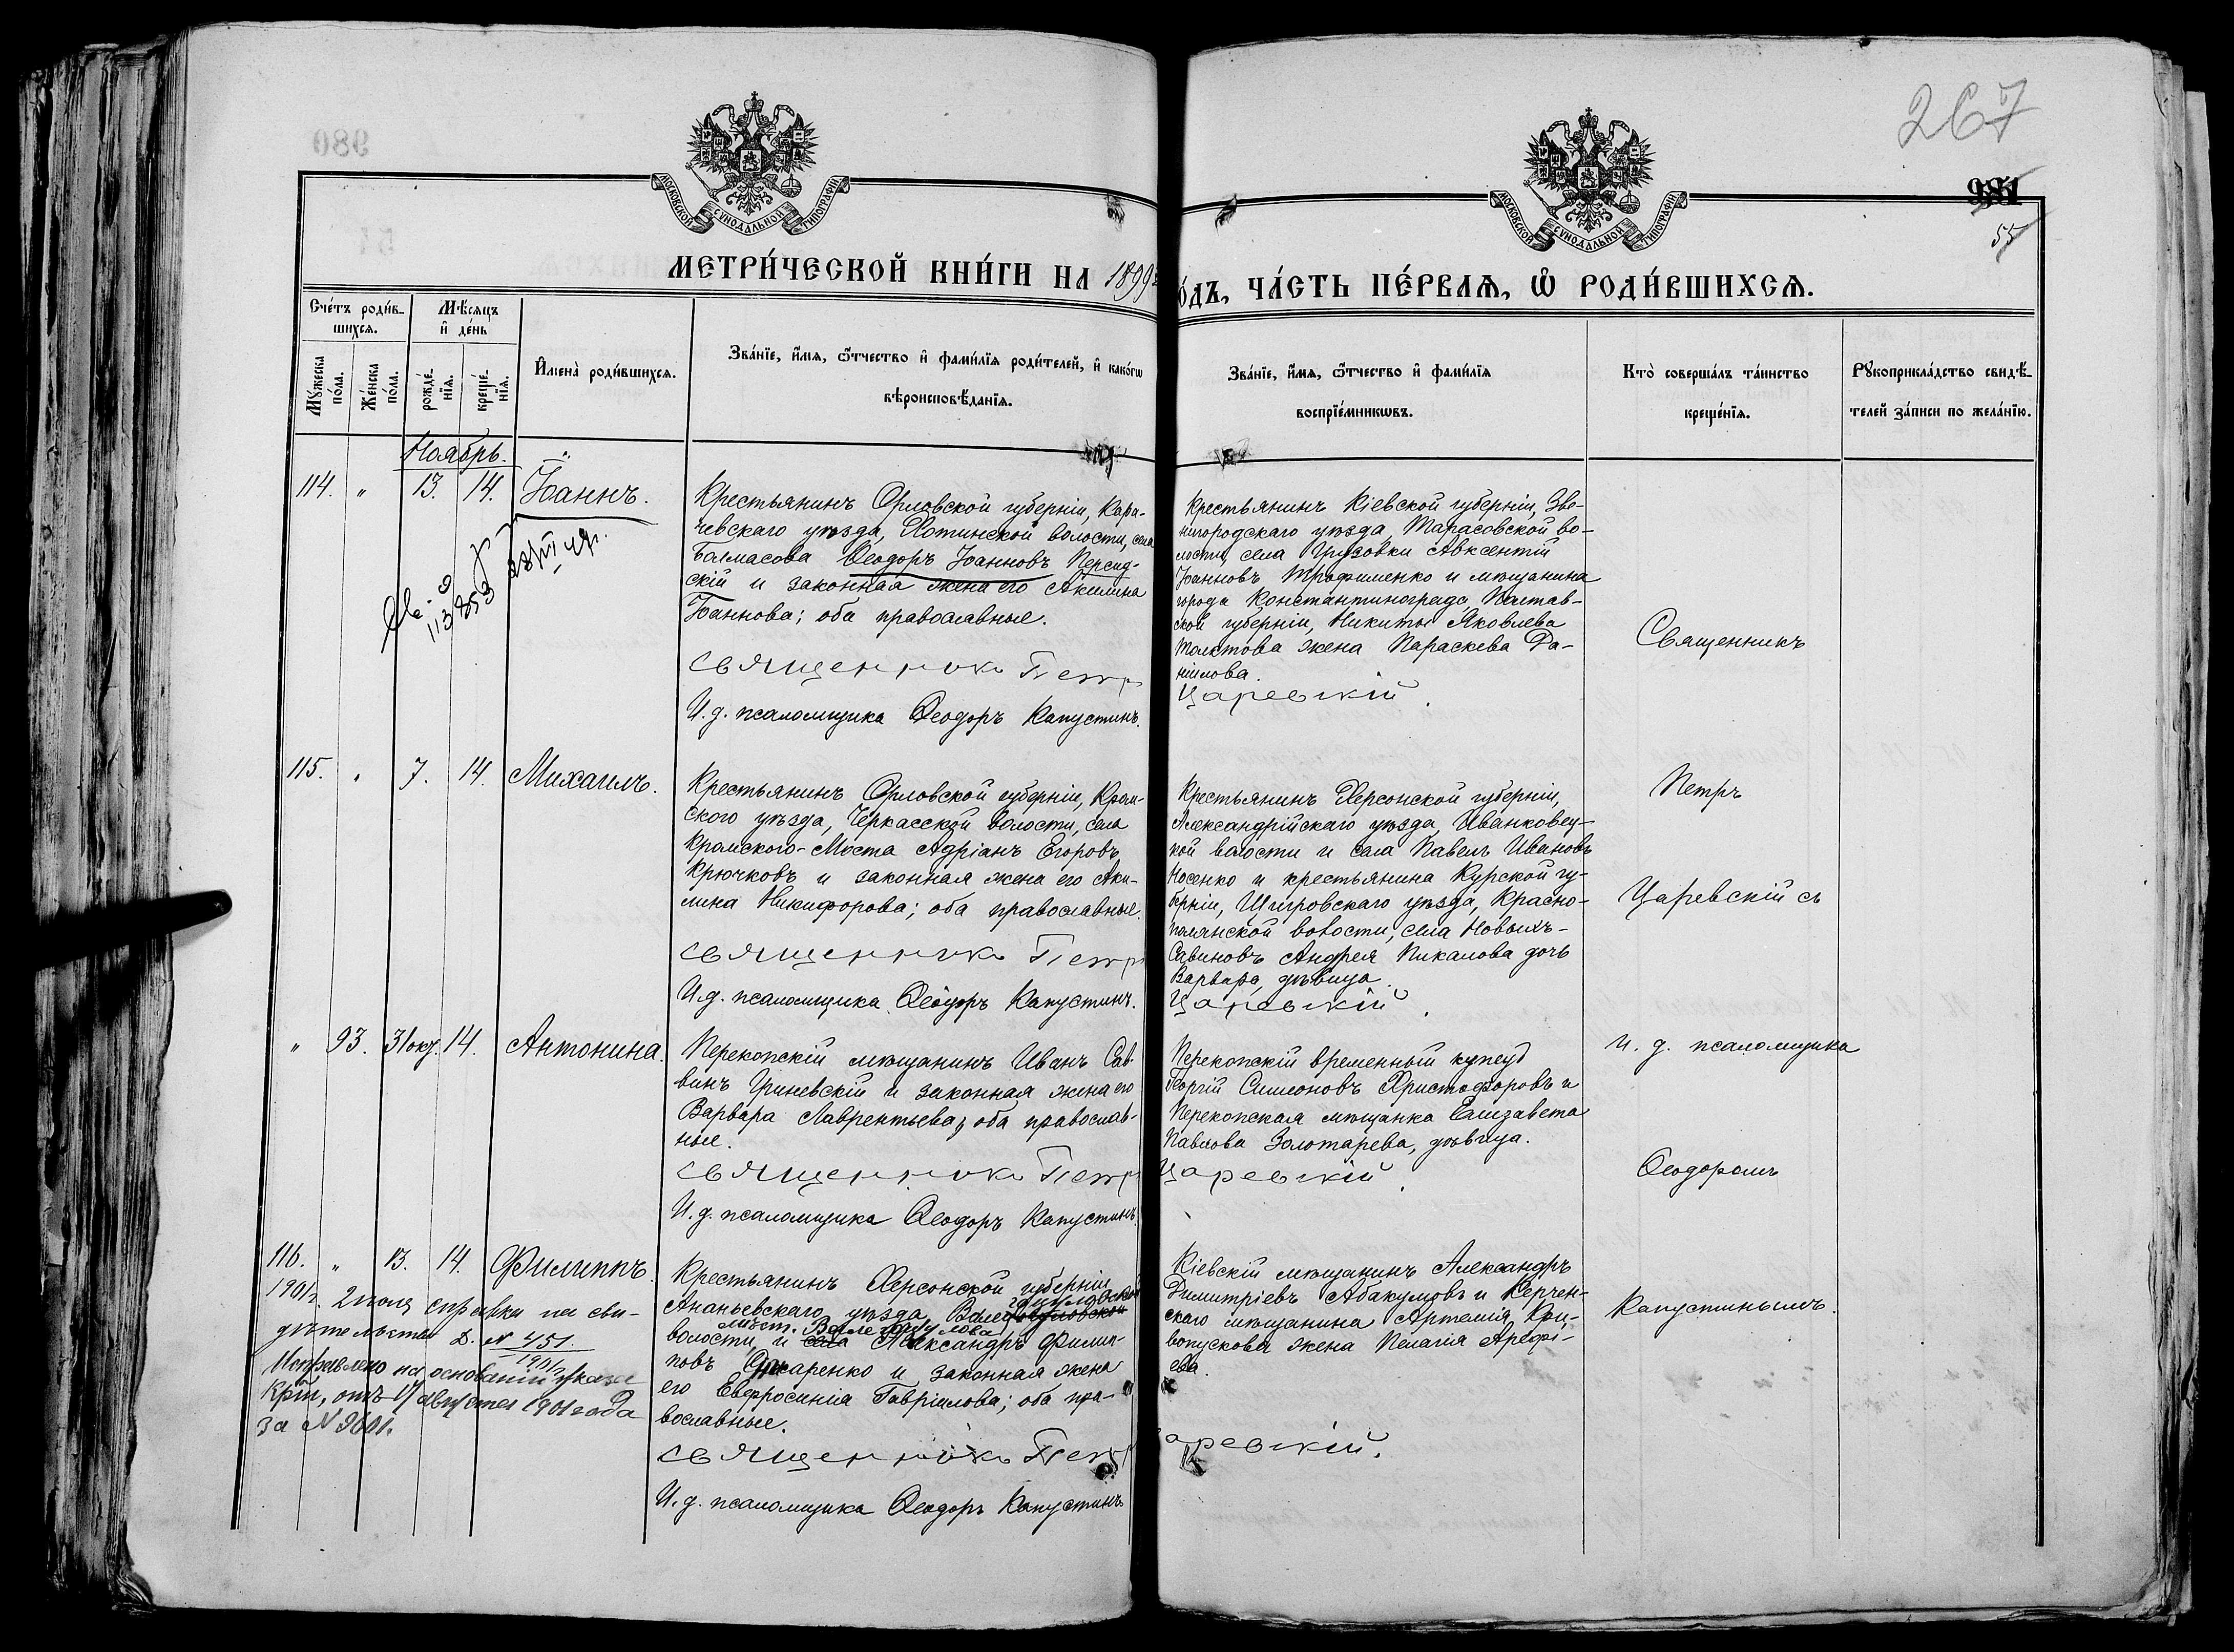 267
980
981
55
МОСКОВСКОЙ СѴНОДАЛЬНОЙ ТИПОГРАФІИ
МОСКОВСКОЙ СѴНОДАЛЬНОЙ ТИПОГРАФІИ
МЕТРИ́ЧЕСКОЙ КНИ́ГИ НА 1899 го́дъ, ЧА́СТЬ ПЕ́РВАѦ, Ѡ҆ РОДИ́ВШИХСѦ.
Сче́тъ роди́в-
шихсѧ.
Мꙋ́жеска
по́ла.
Же́нска
по́ла.
Мѣ́сѧцъ
и҆ де́нь
рожде́-
нїѧ.
креще́-
нїѧ.
И҆мена̀ роди́вшихсѧ.
Зва́нїе, и҆́мѧ, ѻ҆́тчество и҆ фами́лїѧ роди́телей, и҆ како́гѡ
вѣроисповѣ́данїѧ.
Зва́нїе, и҆́мѧ, ѻ҆́тчество и҆ фами́лїѧ
воспрїе́мникѡвъ.
Кто̀ соверша́лъ та́инство
креще́нїѧ.
Рꙋкоприкла́дство свидѣ́-
телей за́писи по жела́нїю.
Ноябрь.
114. " 13. 14. Іоаннъ.
Крестьянинъ Орловской губерніи, Кара-
чевскаго уѣзда, Хотинской волости, села
Балмасова Ѳеодоръ Іоанновъ Персид-
скій и законная жена его Акилина
Іоаннова; оба православные.
Священникъ Петръ
И. д. псаломщика Ѳеодоръ Капустинъ.
Крестьянинъ Кіевской губерніи, Зве-
нигородскаго уѣзда, Тарасовской во-
лости, села Грузовки Авксентій
Іоанновъ Трофименко и мѣщанина
города Константинограда, Полтав-
ской губерніи, Никиты Яковлева
жена Параскева Да-
ніилова.
Царевскій.
Священникъ
115. " 7. 14. Михаилъ.
Крестьянинъ Орловской губерніи, Кром-
ского уѣзда, Черкасской волости, села
Кромского-Моста Адріанъ Егоровъ
Крючковъ и законная жена его Аки-
лина Никифорова; оба православные.
Священникъ Петръ
И. д. псаломщика Ѳеодоръ Капустинъ.
Крестьянинъ Херсонской губерніи,
Александрійскаго уѣзда, Иванковец-
кой волости и села Павелъ Ивановъ
Носенко и крестьянина Курской гу-
берніи, Щигровскаго уѣзда, Красно-
полянской волости, села Новыхъ-
Савиновъ Андрея Пикалова дочь
Варвара, дѣвица.
Царевскій.
Петръ
Царевскій съ
" 93. 31 окт. 14. Антонина.
Перекопскій мѣщанинъ Иванъ Сав-
винъ Гриневскій и законная жена его
Варвара Лаврентьева; оба православ-
ные.
Священникъ Петръ
И. д. псаломщика Ѳеодоръ Капустинъ.
Перекопскій временный купецъ
Георгій Симеоновъ Христофоровъ и
Перекопская мѣщанка Елизавета
Павлова Золотарева, дѣвица.
Царевскій.
и. д. псаломщика
Ѳеодоромъ
116. " 13. 14. Филиппъ.
1901 г. 2 іюля справки на сви-
дѣтельство Д. № 451.
1901
Исправлено на основаніи указа
от 17 августа 1901 года
за № 9601.
Крестьянинъ Херсонской губерніи,
Ананьевскаго уѣзда,
волости, и села Александръ Филип-
повъ и законная жена
его Евфросинія Гавріилова; оба пра-
вославные.
Священникъ Петръ
И. д. псаломщика Ѳеодоръ Капустинъ
Кіевскій мѣщанинъ Александръ
Димитріевъ Абакумовъ и Керчен-
скаго мѣщанина Артемія Кри-
вопускова жена Пелагія Арефі-
ева.
Царевскій.
Капустинымъ.